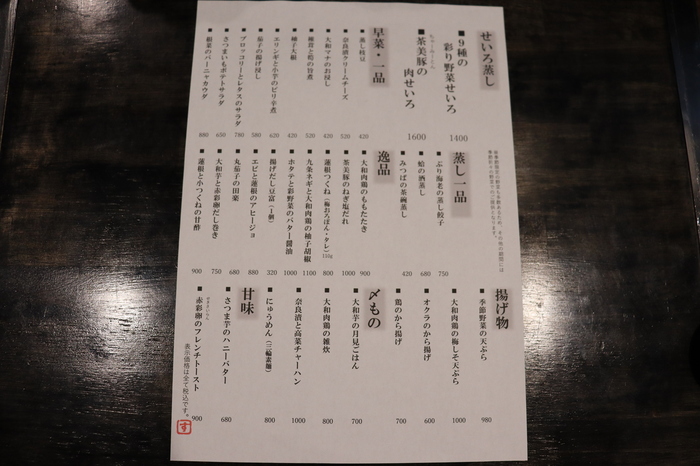 せいろ蒸し
■9種の
彩り野菜せいろ
1400
■茶美豚の
肉せいろ
1600
早菜・一品
■蒸し枝豆 420
■奈良漬クリームチーズ 520
■大和マナのお浸し 420
■椎茸と筍の旨煮 520
■柚子大根 420
■エリンギと小芋のピリ辛煮 620
■茄子の揚げ浸し 580
■ブロッコリーとレタスのサラダ 780
■さつまいもポテトサラダ 650
■根菜のバーニャカウダ 880
蒸し一品
■ぶり海老の蒸し餃子 750
■蛤の酒蒸し 680
■みつばの茶碗蒸し 420
逸品
■大和肉鶏のももたたき 900
■茶美豚のねぎ塩だれ 1000
■蓮根つくね(梅おろぽん・タレ) 800
■九条ネギと大和肉鶏の柚子胡椒 1100
■ホタテと彩野菜のバター醤油 1000
■揚げだし豆富(1個) 320
■エビと蓮根のアヒージョ 880
■丸茄子の田楽 680
■大和芋と赤彩卵だし巻き 750
■蓮根と小つくねの甘酢 900
揚げ物
■季節野菜の天ぷら 980
■大和肉鶏の梅しそ天ぷら 1000
■オクラのから揚げ 600
■鶏のから揚げ 700
〆もの
■大和芋の月見ごはん 700
■大和肉鶏の雑炊 800
■奈良漬と高菜チャーハン 1000
■にゅうめん(三輪素麺) 800
甘味
■さつま芋のハニーバター 680
■赤彩卵のフレンチトースト 900
表示価格は全て税込です。